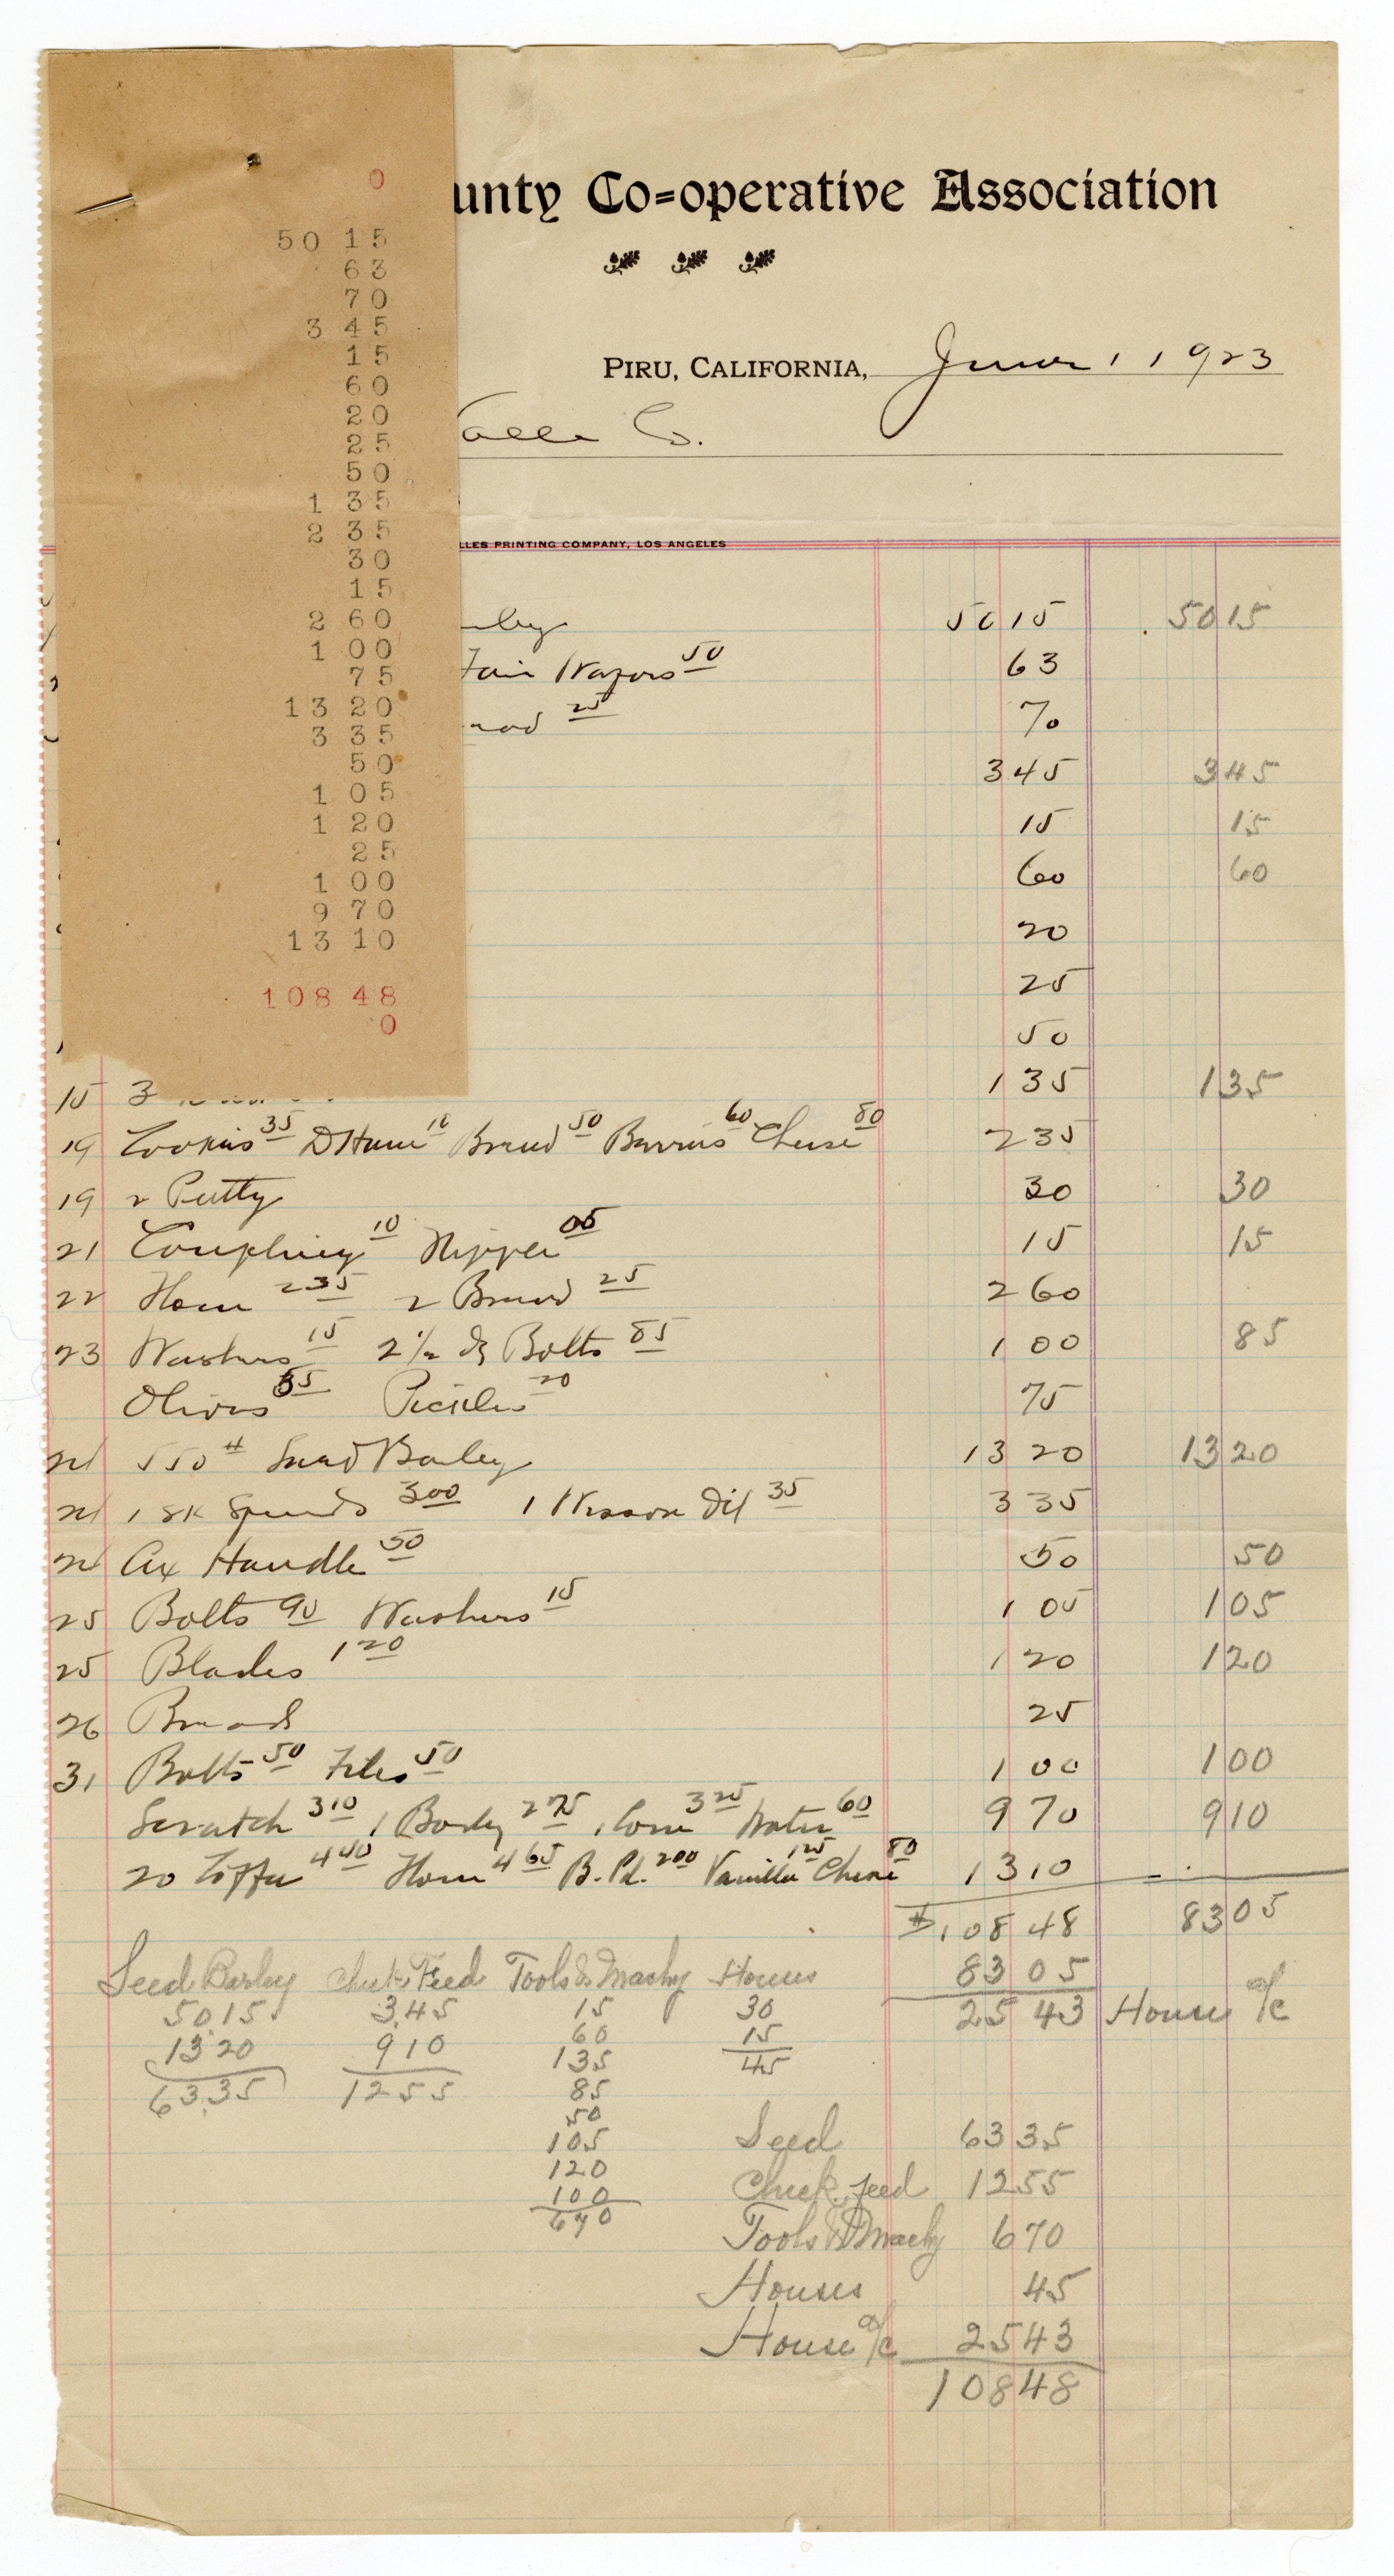 0
50 15
63
70
3 45
15
60
20
25
50
1 35
2 35
30
15
2 60
1 00
75
13 20
3 35
50
1 05
1 20
25
1 00
9 70
13 10
108 48
0
unty Co=operative Association
PIRU, CALIFORNIA, 1 1923
Co.
LLES PRINTING COMPANY, LOS ANGELES
50 15 50 15
50 63
25 70
3 45 3 45
15 15
60 60
20
25
50
15 3 1 35 1 35
19 35 D Ham 10 Bread 50 60 Cheese 80 2 35
19 2 Putty 30 30
21 10 Nipple 05 15 15
22 2 35 2 Bread 25 2 60
23 Washers 15 2 1/2 Bolts 85 1 00 85
Olives 55 Pickles 20 75
24 550 # Seed Barley 13 20 13 20
24 1 SK Spuds 3 00 1 Wesson Oil 35 3 35
24 Ax Handle 50 50 50
25 Bolts 90 Washers 15 1 05 1 05
25 Blades 1 20 1 20 1 20
26 Bread 25
31 Bolts 50 Files 50 1 00 1 00
Scratch 3 10 1 Barley 2 75 1 Corn 3 25 60 9 70 9 10
20 Coffee 4 40 Ham 4 65 B. Pd. 2 00 Vanilla 1 25 Cheese 80 13 10
$108 48 83 05
83 05
25 43 House a/c
Seed Barley Chick Feed Tools & Machy Houses
50.15 3.45 15 30
13 20 9 10 60 15
63.35 12 55 1 35 45
85
50
1 05 Seed 63 35
1 20 Chick. feed 12 55
1 00
6 70 Tools & Machy 6 70
Houses 45
House a/c 25 43
108 48